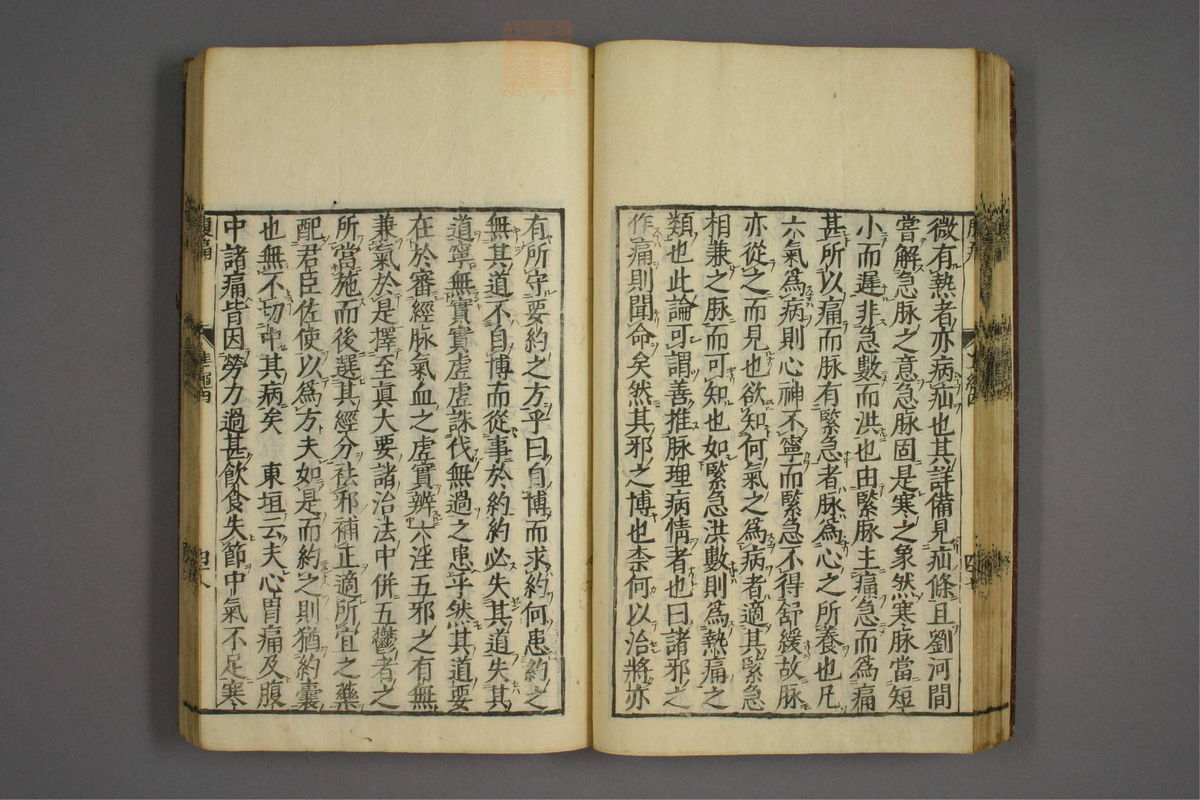 微有熱者亦病疝也其詳備見疝條且劉河間
嘗解急脉之意急脉固是寒之象然寒脉當短
小而遲非急數而洪也由緊脉主痛急而爲痛
甚所以痛而脉有緊急者脉爲心之所養也凡
六氣爲病則心神不寧而緊急不得舒緩故脉
亦從之而見也欲知何氣之爲病者適其緊急
相兼之脉而可知也如緊急洪數則爲熱痛之
類也此論可謂善推脉理病情者也曰諸邪之
作痛則聞命矣然其邪之博也柰何以治將亦
有所守要約之方乎曰自博而求約何患約之
無其道不自博而從事於約約必失其道失其
道寧無實實虛虛誅伐無過之患乎然其道要
在於審經脉氣血之虛實辨六淫五邪之有無
兼氣於是擇至眞大要諸治法中併五鬱者之
所當施而後選其經分祛邪補正適所宜之藥
配君臣佐使以爲方夫如是而約之則猶約囊
也無不切中其病矣　東垣云夫心胃痛及腹
中諸痛皆因勞力過甚飮食失節中氣不足寒
腹痛
四十八